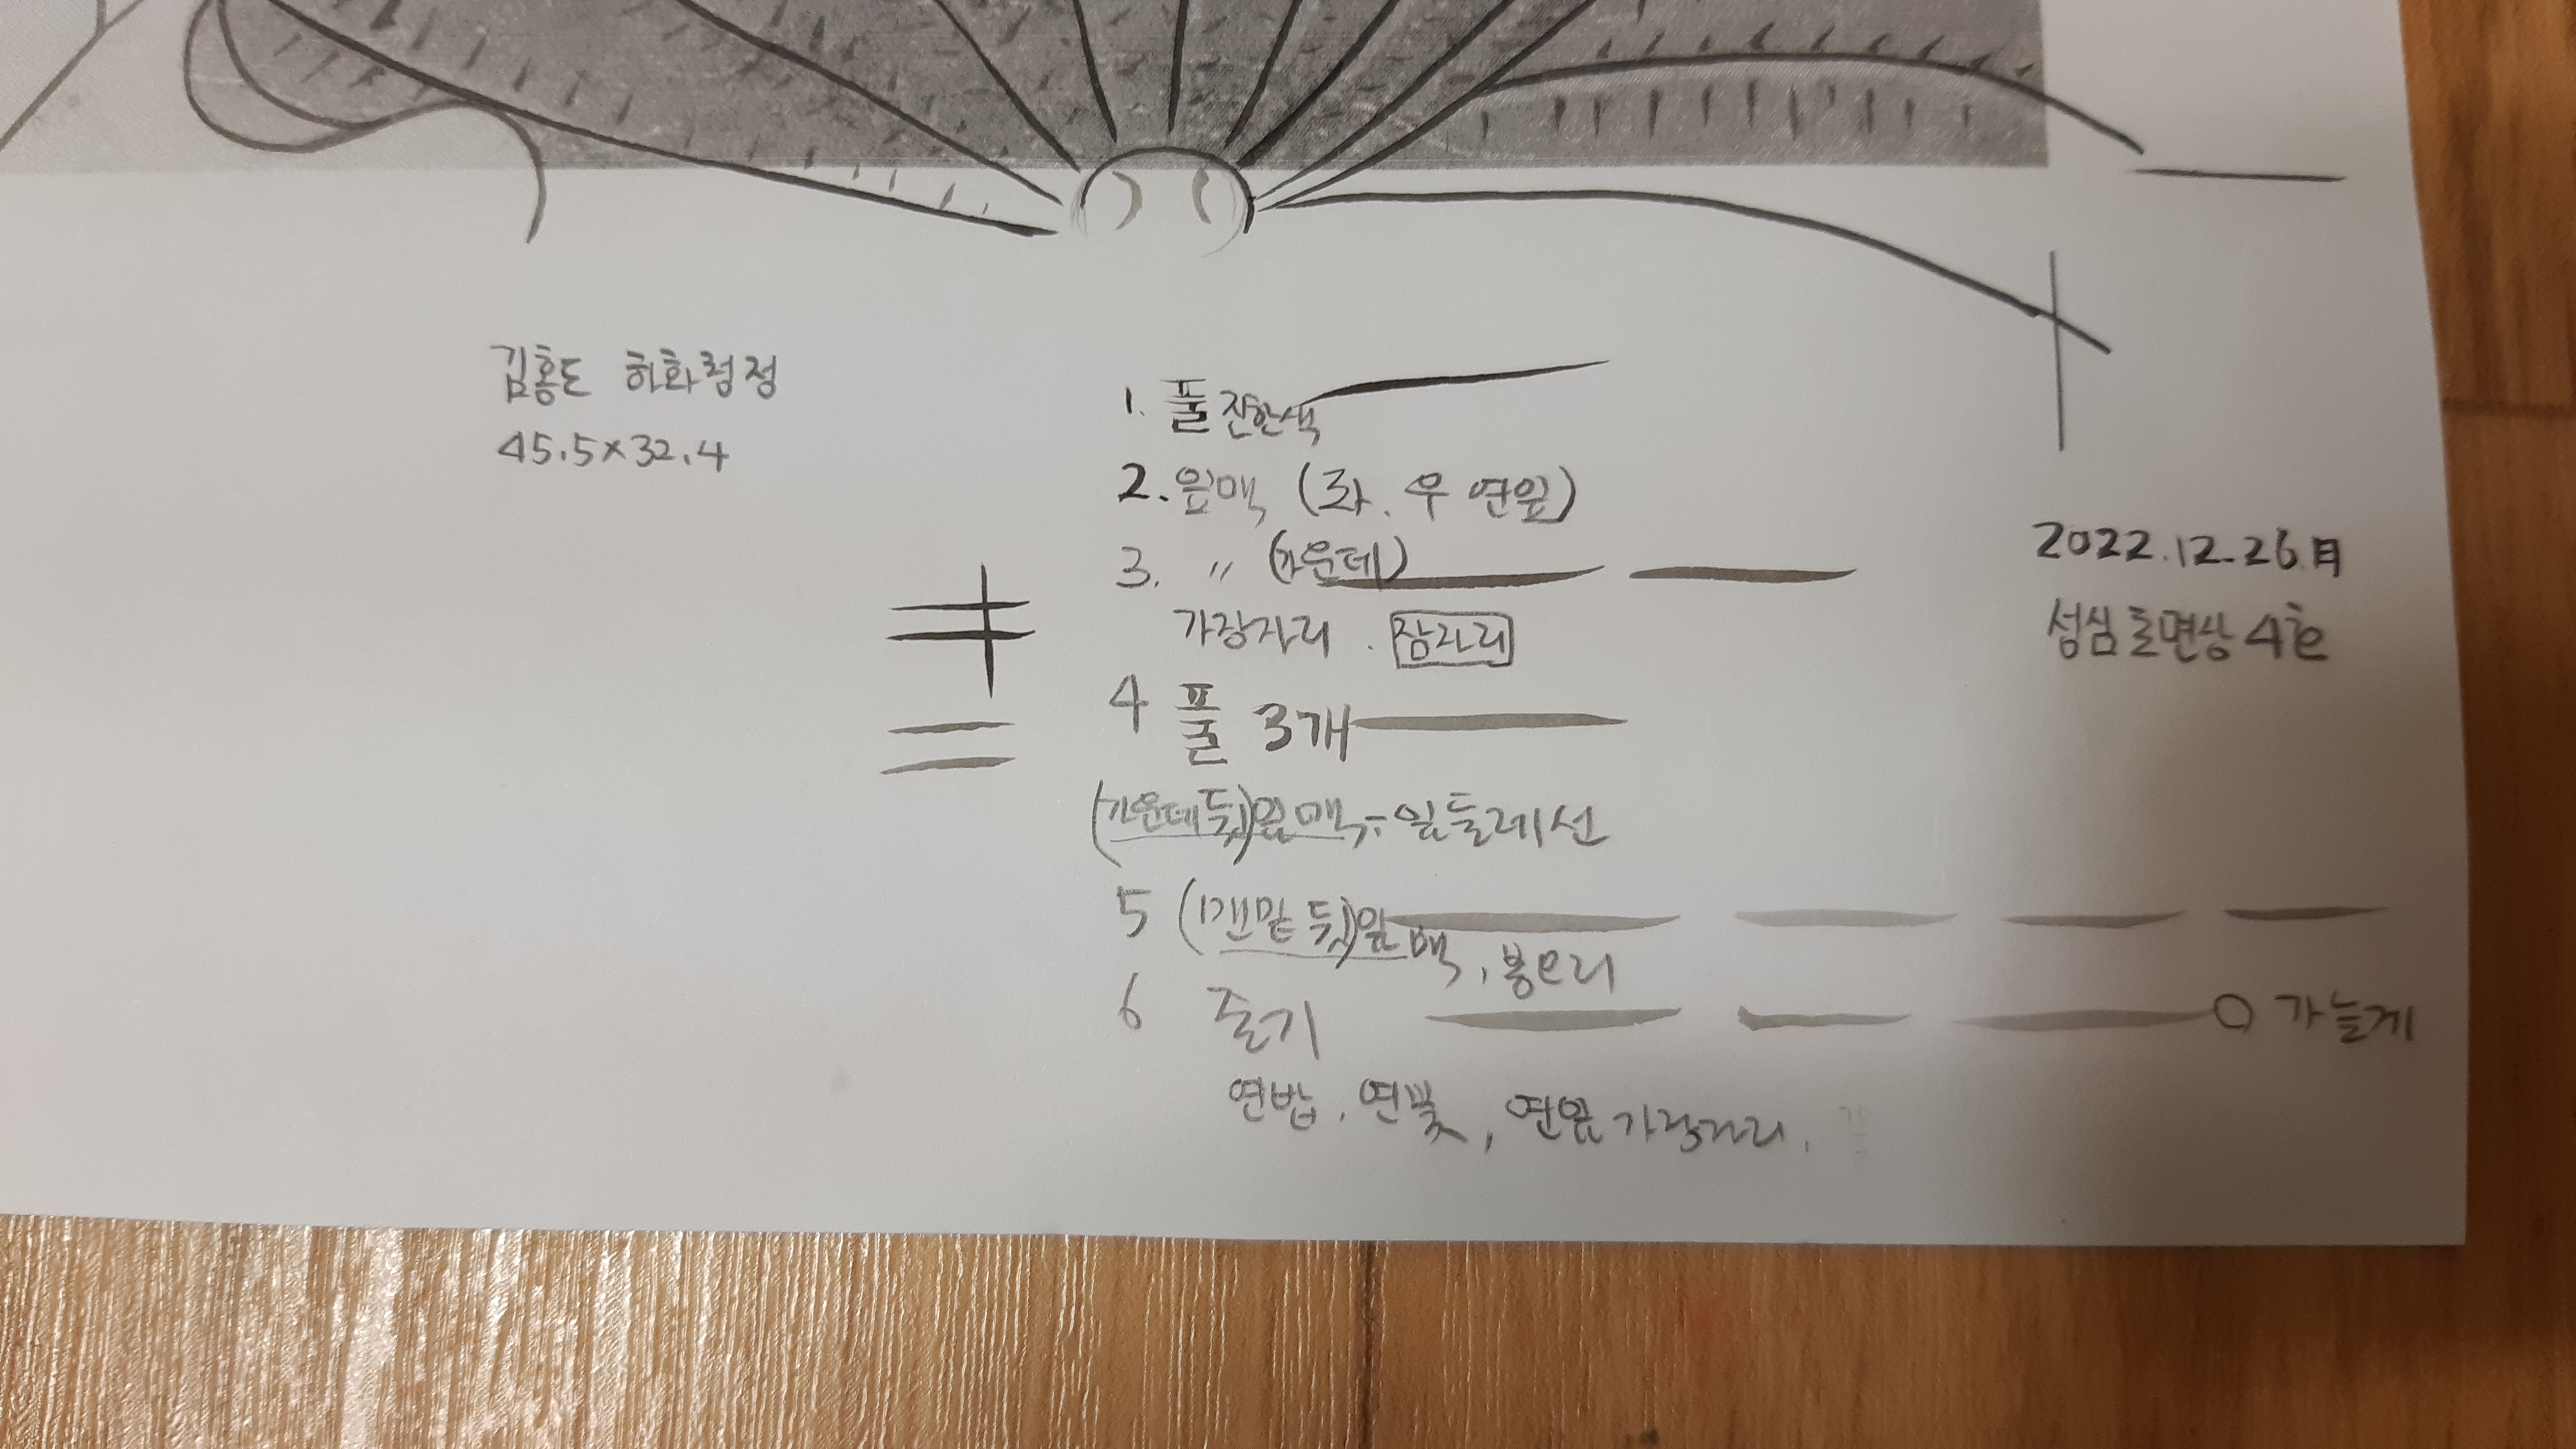 김홍도 하화청정
45.5×32.4
1. 풀 진한색
2. 잎맥 (좌. 우 연잎)
3. 〃 (가운데)
가장자리 . 잠자리
4 풀 3개
(가운데 뒷)잎맥, 잎둘레선
5 (맨밑 뒷)잎맥, 봉오리
6 줄기
가늘게
연밥, 연꽃, 연잎 가장자리.
2022.12.26.月
4층